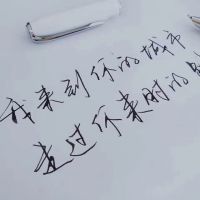 我来到你的城市
走过你来时的